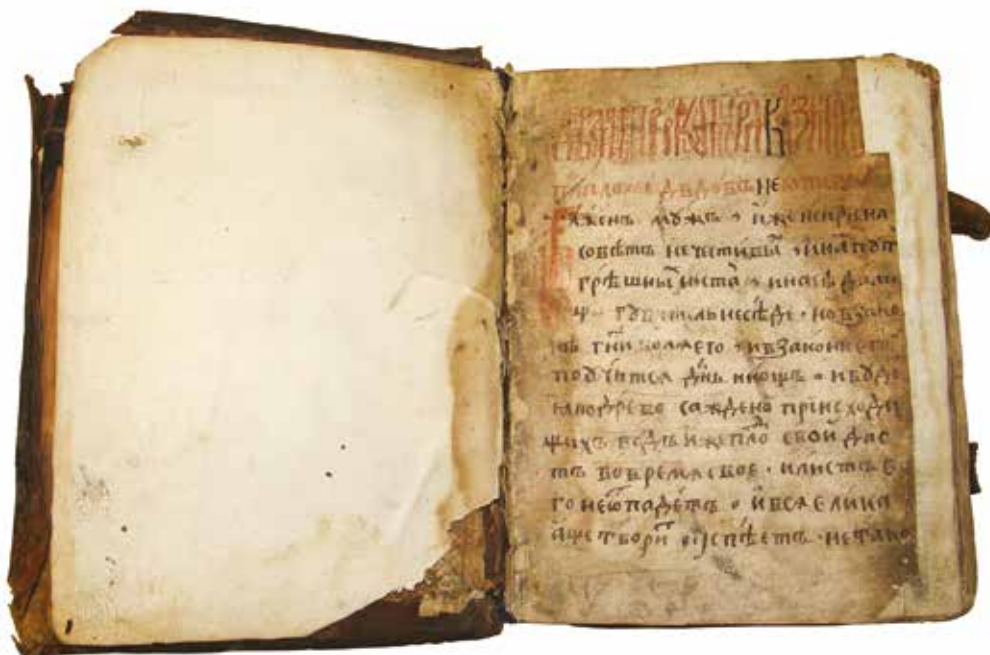 дв҃двъ не
аженъ мꙋжъ · иже неиде на
совѣтъ нечестивы · и на пꙋт
грѣшны н · и на сѣдали
щи гꙋбитель не сѣде · но в зако
нѣ гн҃и волѧ его · и в законѣ е
поꙋчитсѧ дн҃ь и нощь · и бꙋде
ꙗко древо саждено при исходи
щихъ водъ иже плⷪ свои дас
тъ во времѧ свое · и листъ е
го не ѿпадетъ · и всѧ елика
аще твори ᲂуспѣетъ · не тако